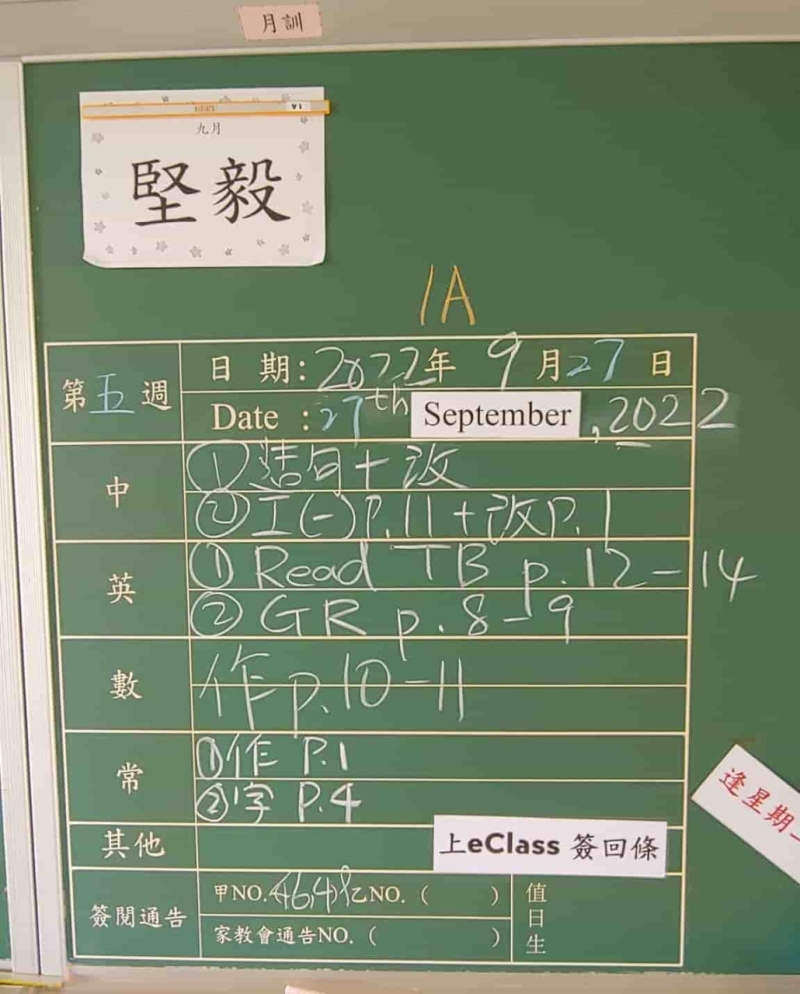 月訓
1A
九月
堅毅
1A
第五週
日 期:2022年 9月27日
Date :27th September, 2022
中
①造句+改
②工(一)P.11+改P.1
英
① Read TB p.12-14
② GR p.8-9
數
作p.10-11
常
①作 P.1
②字 P.4
其他
上eClass 簽回條
簽閱通告
甲NO. 乙NO.( )
家教會通告NO.( )
值日生
逢星期